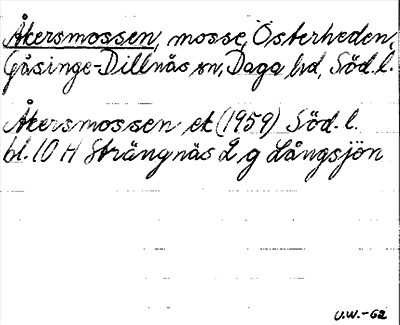 Åkersmossen, mosse, Österheden,
Gåsinge-Dillnäs sn, Daga hd, Söd. l.
Åkersmossen ek (1959) Söd. l.
bl. 10 H Strängnäs 2 g Långsjön
U.W.-62